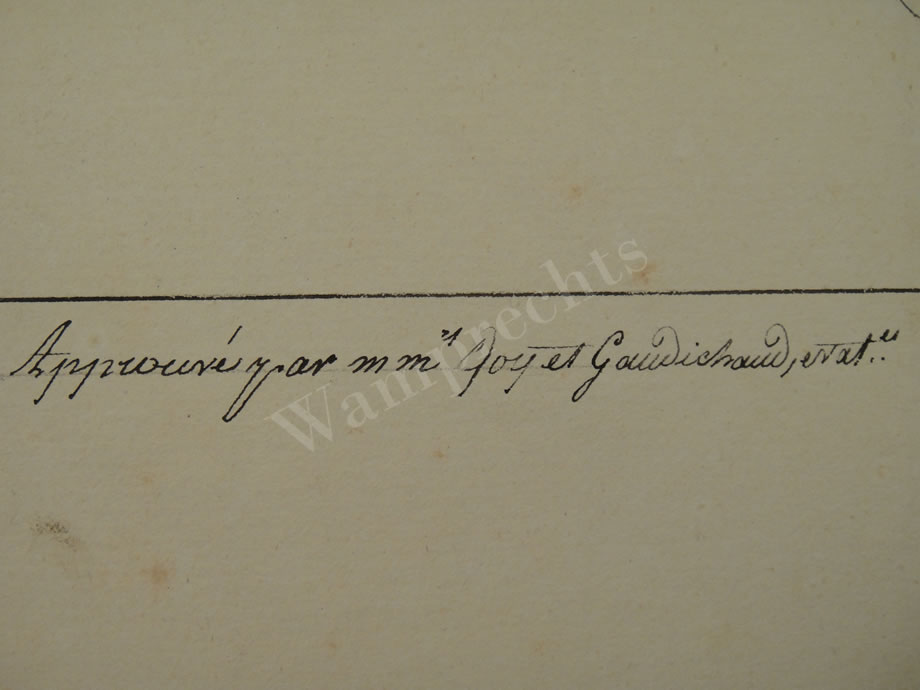 Approuvé par m mrs Quoy et Gaudichaud, et at.rs
Wamprechts